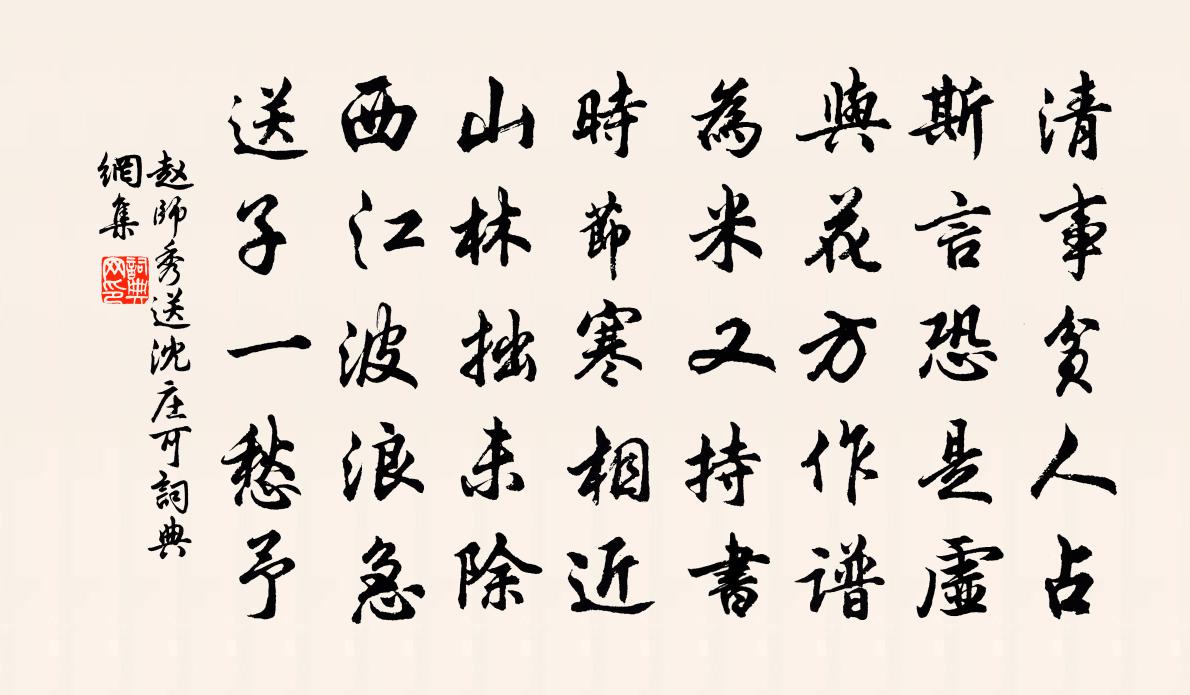 清事貧人占
斯言恐是虛
與花方作譜
為米又持書
時節寒相近
山林拙未除
西江波浪急
送子一愁予
赵師秀送沈庄可詞典
網集
詞典網印